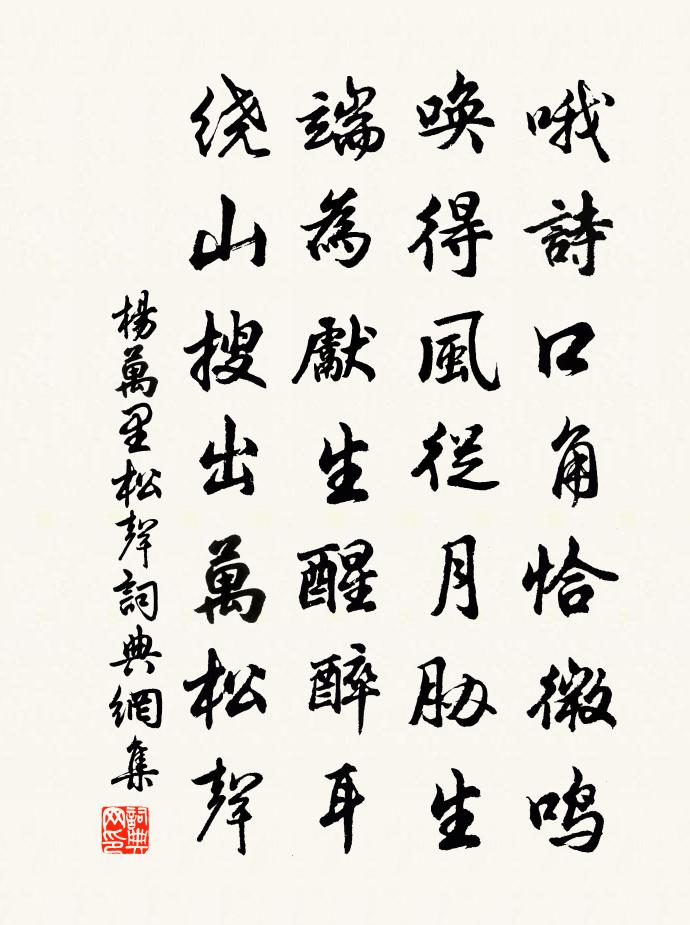 哦詩口角恰微鸣
唤得風從月胁生
端為獻生醒醉耳
绕山搜出萬松聲
楊萬里松聲詞典網集
詞典网印